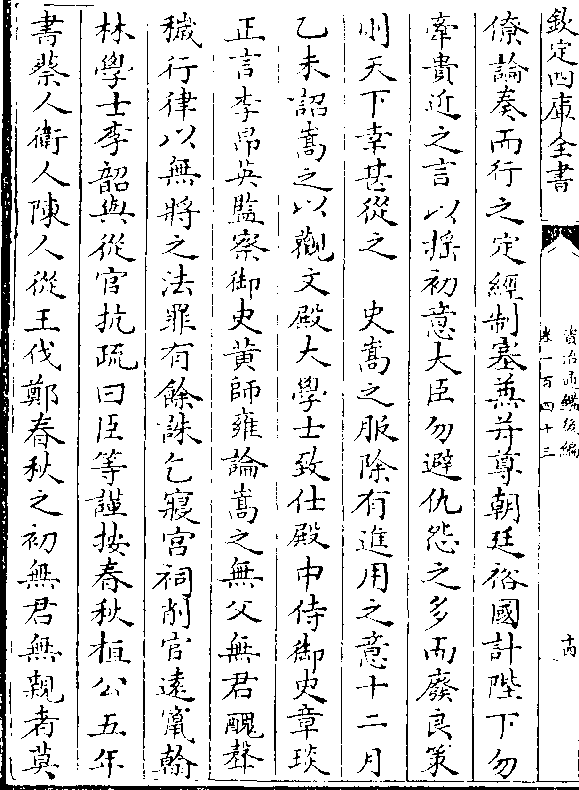 欽定四庫全書
資治通鑑後編
卷一百四十三
十四
僚論奏而行之定經制塞兼并尊朝廷裕國計陛下勿
牽貴近之言以揺初意大臣勿避仇怨之多而廢良策
則天下幸甚從之　史嵩之服除有進用之意十二月
乙未詔嵩之以觀文殿大學士致仕殿中侍御史章琰
正言李昂英監察御史黃師雍論嵩之無父無君醜聲
穢行律以無將之法罪有餘誅乞寢宫祠削官逺竄翰
林學士李韶與從官抗疏曰臣等謹按春秋桓公五年
書蔡人衞人陳人從王伐鄭春秋之初無君無親者莫